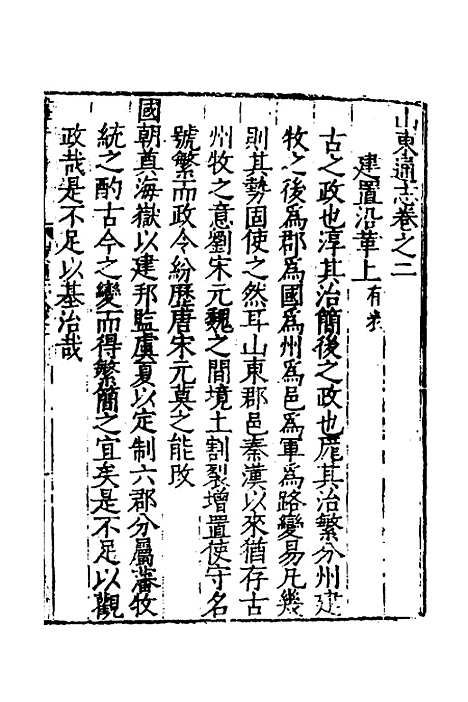 山東通志卷之二
建置沿革上有表
古之政也淳其治簡後之政也厖其治繁分州建
牧之後爲郡爲國爲州爲邑爲軍爲路變易凡幾
則其勢固使之然耳山東郡邑秦漢以來猶存古
州牧之意劉宋元魏之間境土割裂增置使守名
號繁而政令紛歷唐宋元莫之能改
國朝奠海嶽以建邦監虞夏以定制六郡分屬藩牧
統之酌古今之變而得繁簡之宜矣是不足以觀
政哉是不足以基治哉